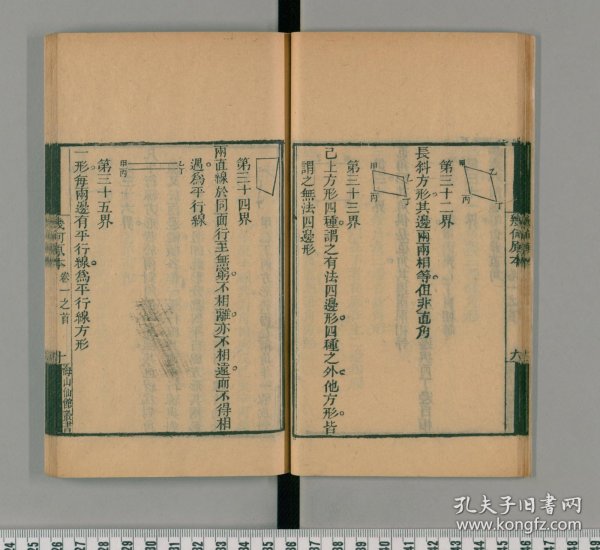 第三十二界
甲 乙 丙 丁
長斜方形其邊兩兩相等但非直角
第三十三界
甲 乙 丙 丁
已上方形四種謂之有法四邊形四種之外他方形皆
謂之無法四邊形
幾何原本
第三十四界
兩直線於同面行至無窮不相離亦不相遠而不得相
遇爲平行線
第三十五界
甲 乙 丙 丁
一形每兩邊有平行線爲平行線方形
幾何原本 卷一之首 十 海山仙館叢書
孔夫子旧书网
www.kongfz.com
24 25 26 27 28 29 30 31 32 33 34 35 36 37 38 39